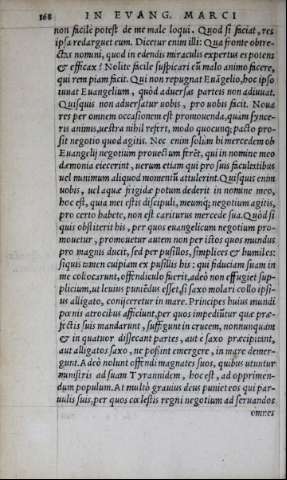 168 IN EVANG. MARCI
non facile potest de me male loqui. Quod si faciat, res
ipsa redarguet eum. Dicetur enim illi: Qua fronte obtre-
ctas nomini, quod in edendis miraculis expertus es potens
& efficax? Nolite facile suspicari eũ malo animo facere,
qui rem piam facit. Qui non repugnat Euãgelio, hoc ipso
iuuat Euangelium, quòd aduersas parteis non adiuuat.
Quisquis non aduersatur uobis, pro uobis facit. Noua
res per omnem occasionem est promouenda, quam synce-
ris animis, uestra nihil refert, modo quocunq; pacto pro-
sit negotio quod agitis. Nec enim solùm hi mercedem ob
Euangelij negotium prouectum ferẽt, qui in nomine meo
dæmonia eiecerint, uerum etiam qui pro suis facultatibus
uel minimum aliquod momentũ attulerint. Quisquis enim
uobis, uel aquæ frigidæ potum dederit in nomine meo,
hoc est, quia mei estis discipuli, meumq; negotium agitis,
pro certo habete, non est cariturus mercede sua. Quòd si
quis obstiterit his, per quos euangelicum negotium pro-
mouetur, promouetur autem non per istos quos mundus
pro magnis ducit, sed per pusillos, simplices & humiles:
siquis unum cuipiam ex pusillis his: qui fiduciam suam in
me collocarunt, offendiculo fuerit, adeò non effugiet sup-
plicium, ut leuius puniẽdus esset, si saxo molari collo ipsi-
us alligato, conijceretur in mare. Principes huius mundi
pœnis atrocibus afficiunt, per quos impediũtur quæ præ-
fectis suis mandarunt, suffigunt in crucem, nonnunquam
& in quatuor dissecant partes, aut è saxo præcipitant,
aut alligatos saxo, ne possint emergere, in mare demer-
gunt. Adeò nolunt offendi magnates suos, quibus utuntur
ministris ad suam Tyrannidem, hoc est, ad opprimen-
dum populum. At multò grauius deus puniet eos qui par-
uulis suis, per quos cœlestis regni negotium ad seruandos
omnes